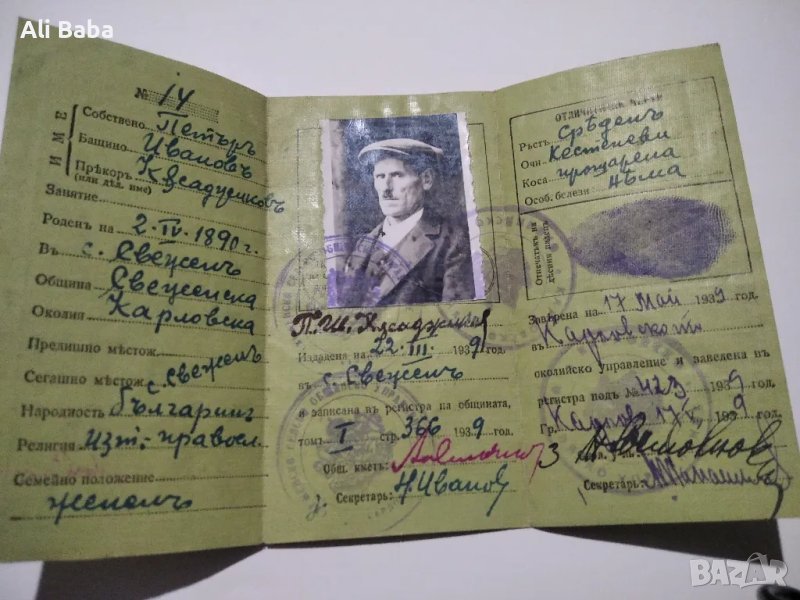 Ali Baba
№ 14
ИМЕ
Собствено Петъръ
Бащино Ивановъ
Прѣкоръ
(или дѣд. име)
Занятие
Роденъ на 2·IV·1890 г.
Въ с. Свеженъ
Община Свеженска
Околия Карловска
Предишно мѣстож.
Сегашно мѣстож. с. Свеженъ
Народность българинъ
Религия изт.-правосл.
Семейно положение
жененъ
Издадена на 22·III· 1939 год.
въ с. Свеженъ
и записана въ регистра на общината,
томъ I стр. 366 1939 год.
Общ. кметъ:
Секретарь: Н. Ивановъ
ОТЛИЧИТЕЛНИ
Ръстъ Срѣденъ
Очи Кестеневи
Коса прошарена
Особ. белези нѣма
Отпечатъкъ на
дѣсния показалецъ
Заверена на 17 Май 1939 год.
въ Карловското
околийско управление и заведена въ
регистра подъ № 423 1939 год.
Гр. Карлово 17 V 1939 г.
Секретарь:
BAZAR